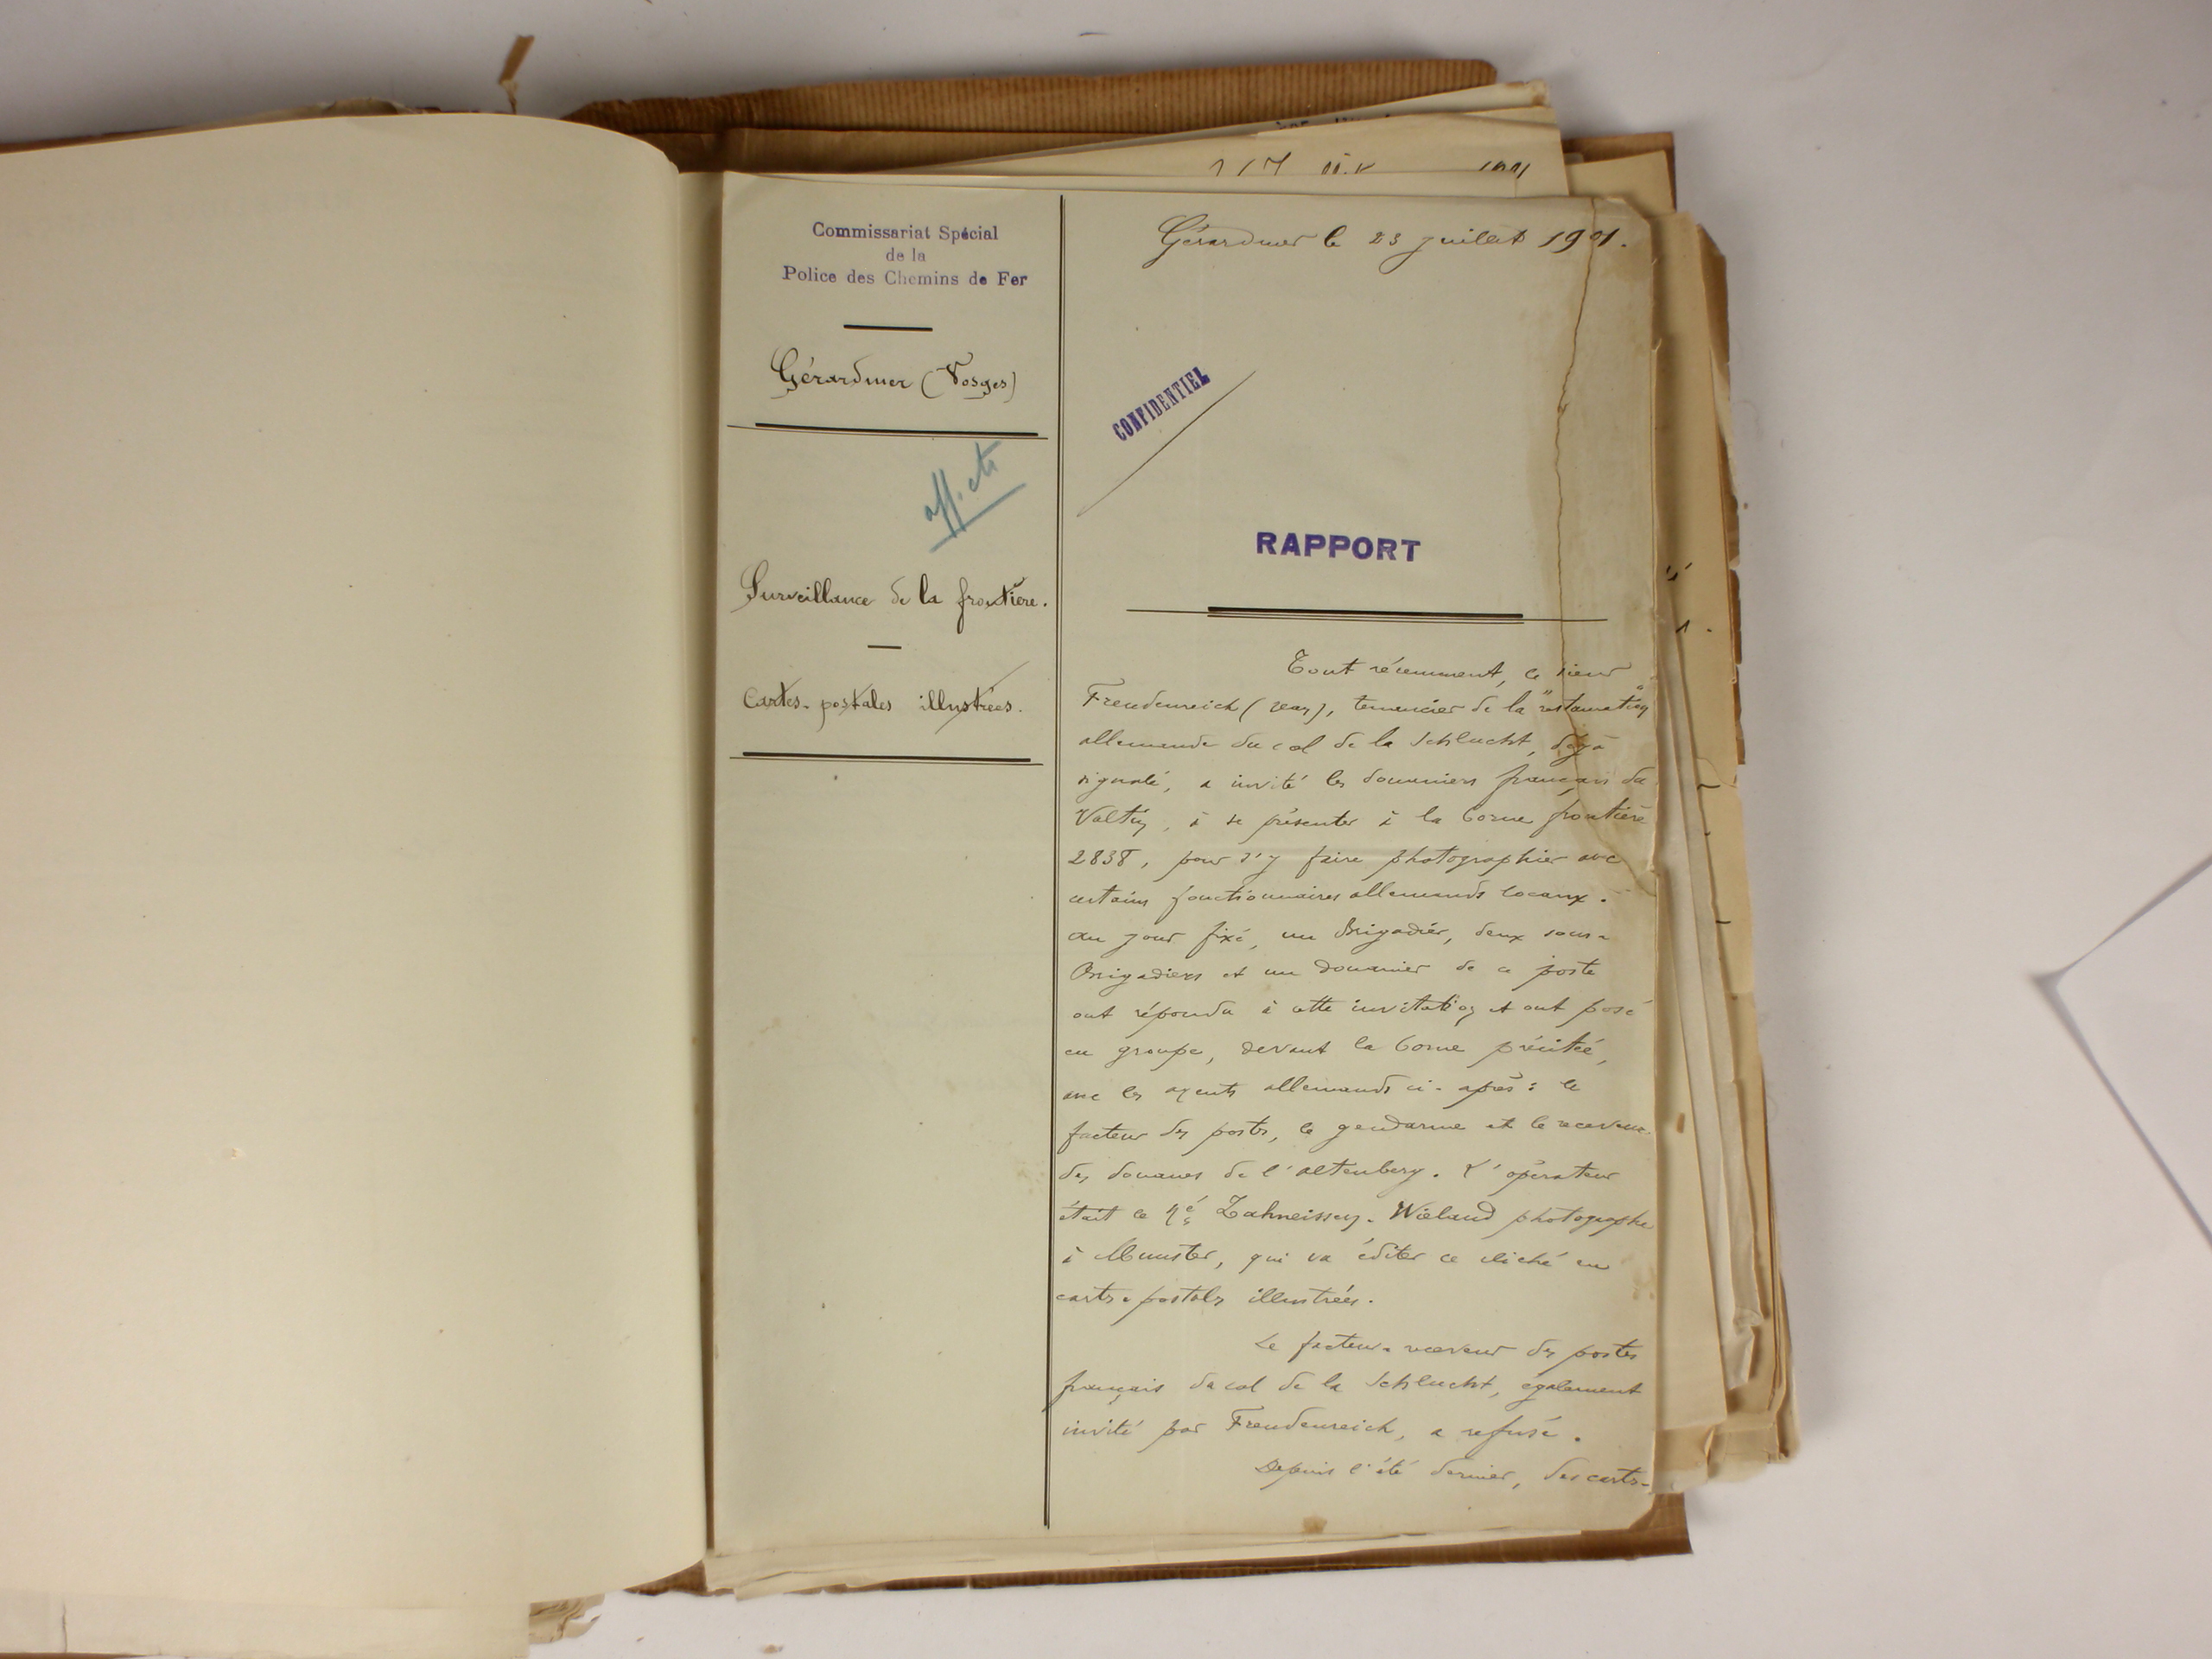 Commissariat Spécial
de la
Police des Chemins de Fer
Gérardmer (Vosges)
Surveillance de la frontière.
Cartes-postales illustrées.
Gérardmer le 23 juillet 1901.
CONFIDENTIEL
RAPPORT
Tout récemment, le sieur
Freudenreich (Jean), tenancier de la "restauration"
allemande du col de la Schlucht, déjà
signalé, a invité les douaniers français du
Valtin, à se présenter à la borne frontière
2838, pour s'y faire photographier avec
certains fonctionnaires allemands locaux.
Au jour fixé, un Brigadier, deux sous-
Brigadiers et un douanier de ce poste
ont répondu à cette invitation et ont posé
en groupe, devant la borne précitée,
avec les agents allemands ci-après: le
facteur des postes, le gendarme et le receveur
des douanes de l'Altenberg. L'opérateur
était le né Zahneissen-Wieland photographe
à Munster, qui va éditer ce cliché en
cartes-postales illustrées.
Le facteur-receveur des postes
français du col de la Schlucht, également
invité par Freudenreich, a refusé.
Depuis l'été dernier, des cartes-